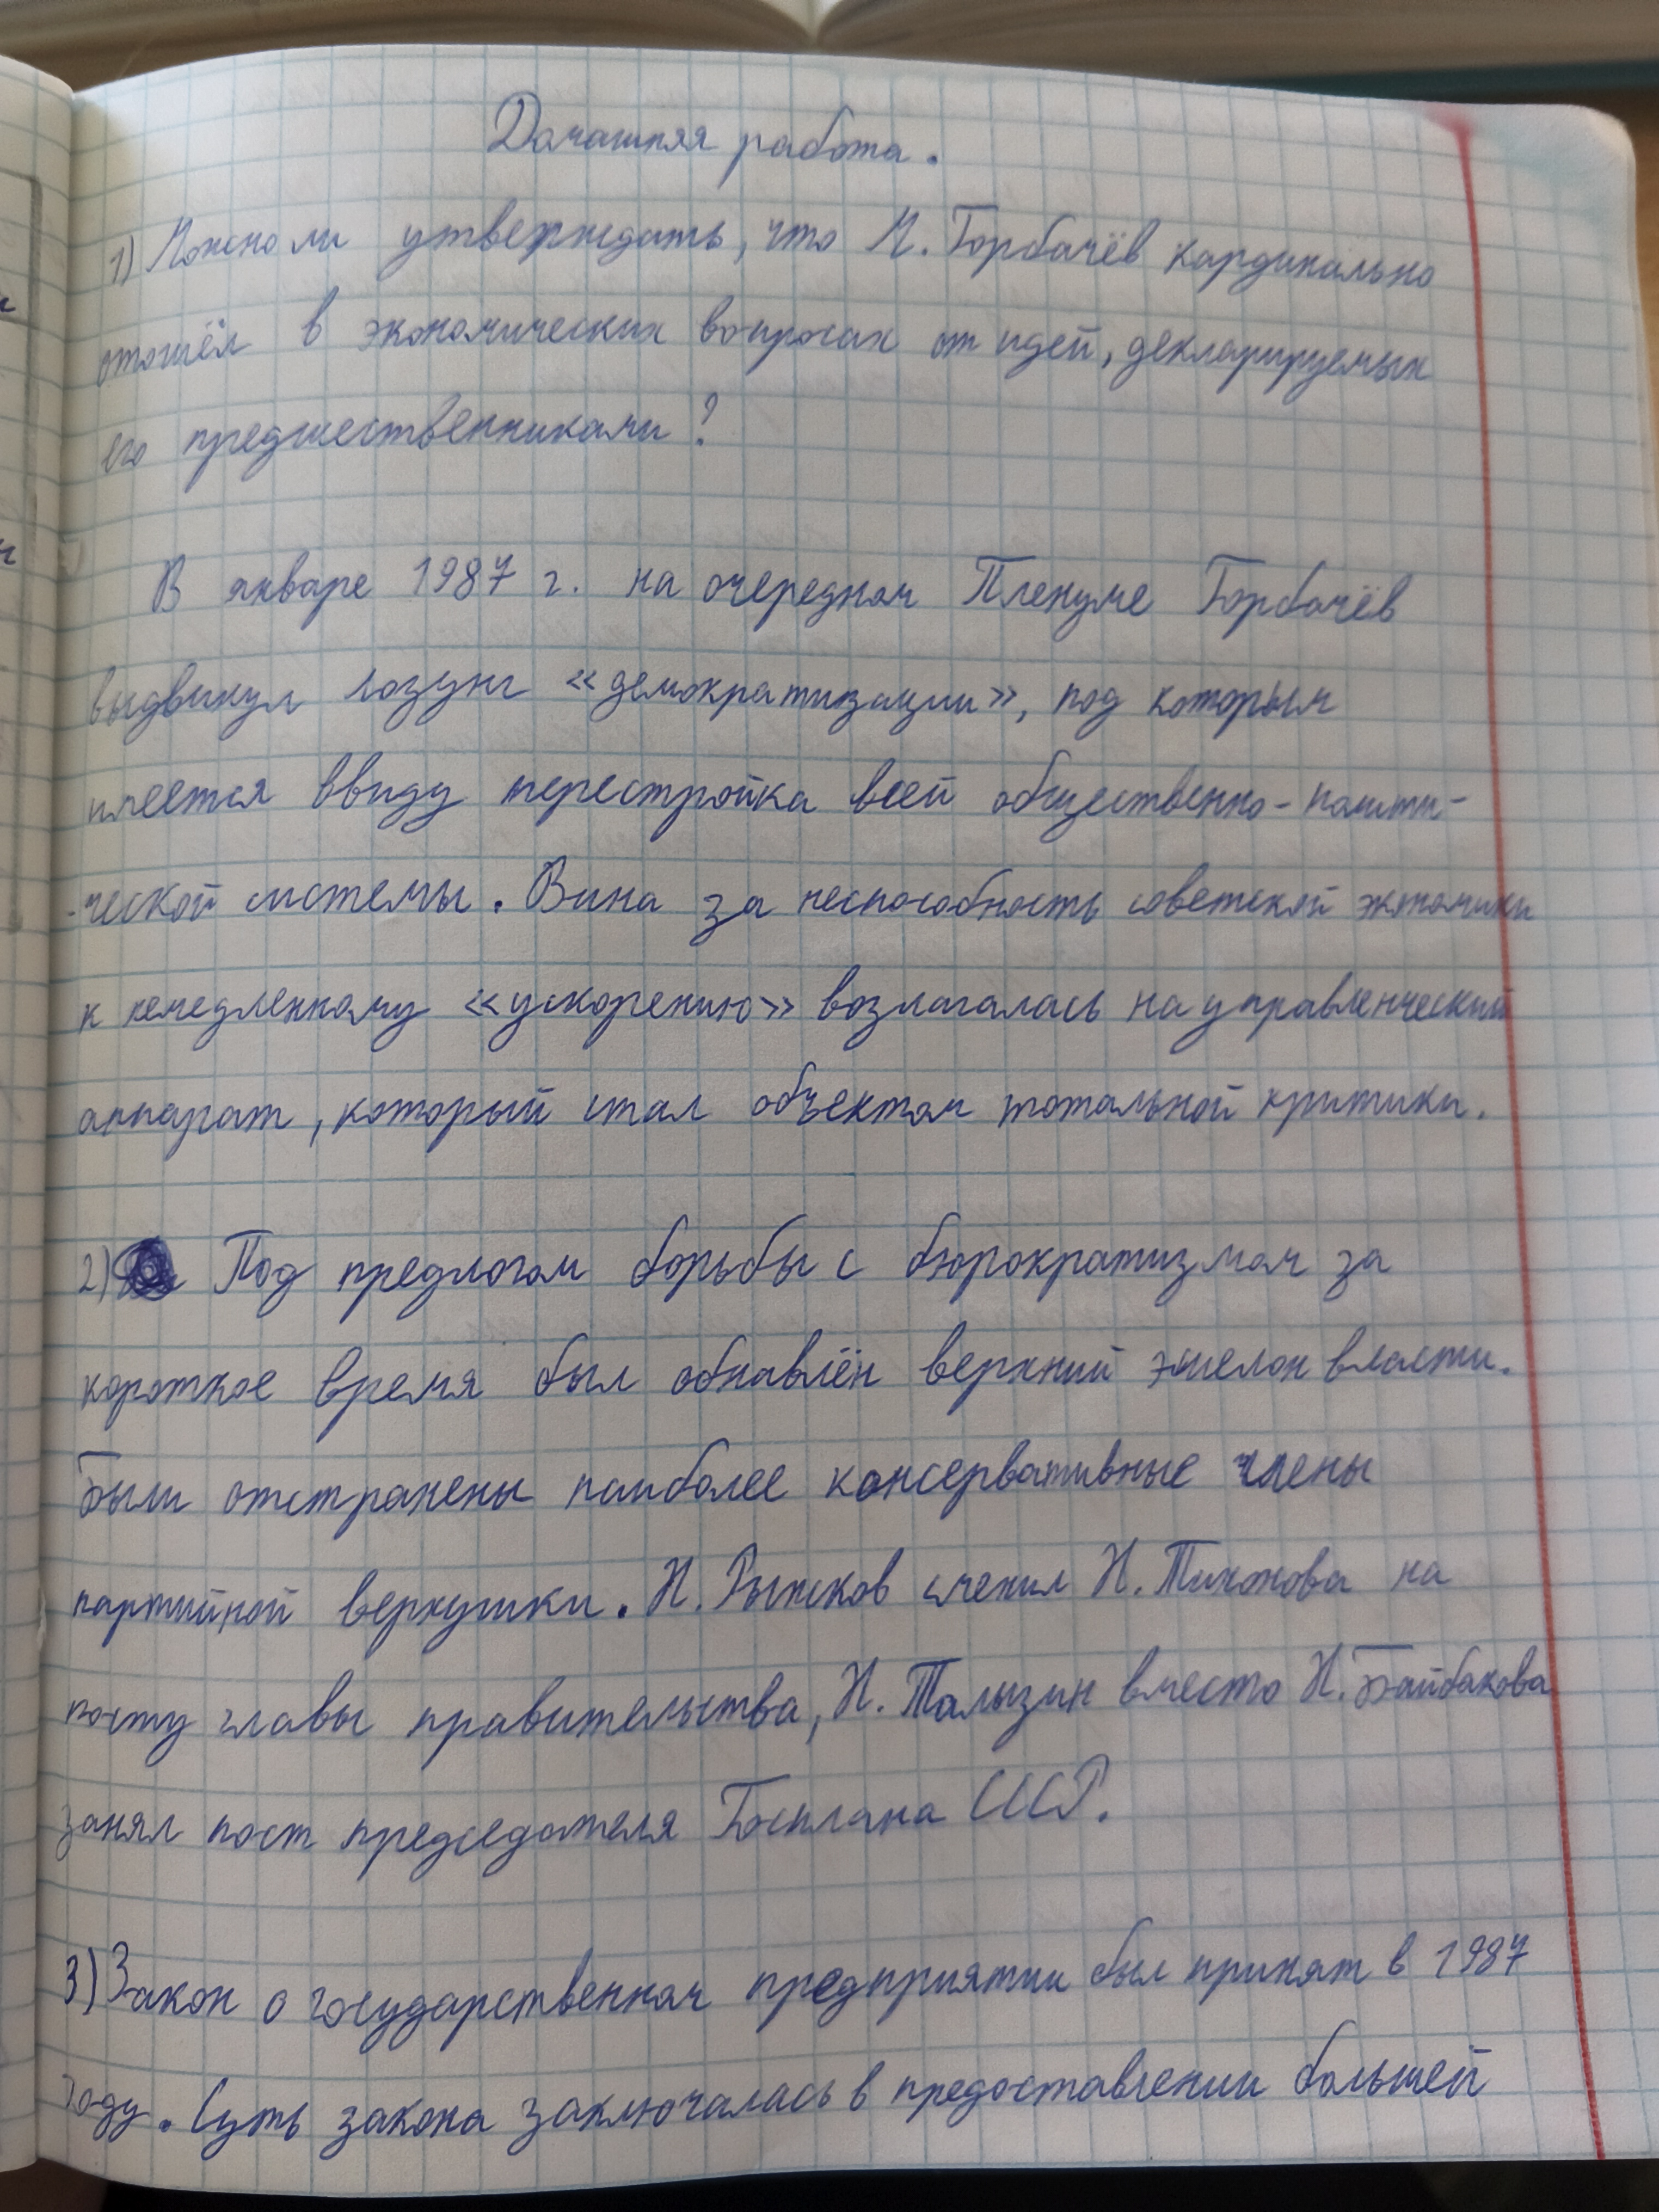 Домашняя работа.
1) Можно ли утверждать, что М. Горбачёв кардинально
отошёл в экономических вопросах от идей, декларируемых
его предшественниками?
В январе 1987 г. на очередном Пленуме Горбачёв
выдвинул лозунг «демократизации», под которым
имеется ввиду перестройка всей общественно-полити-
-ческой системы. Вина за неспособность советской экономики
к немедленному «ускорению» возлагалась на управленческий
аппарат, который стал объектом тотальной критики.
2) Под предлогом борьбы с бюрократизмом за
короткое время был обнавлён верхний эшелон власти.
Были отстранены наиболее консервативные члены
партийной верхушки. Н. Рыжков сменил Н. Тихонова на
посту главы правительства, Н. Талызин вместо Н. Байбакова
занял пост председателя Госплана СССР.
3) Закон о государственном предприятии был принят в 1987
году. Суть закона заключалась в предоставлении большей